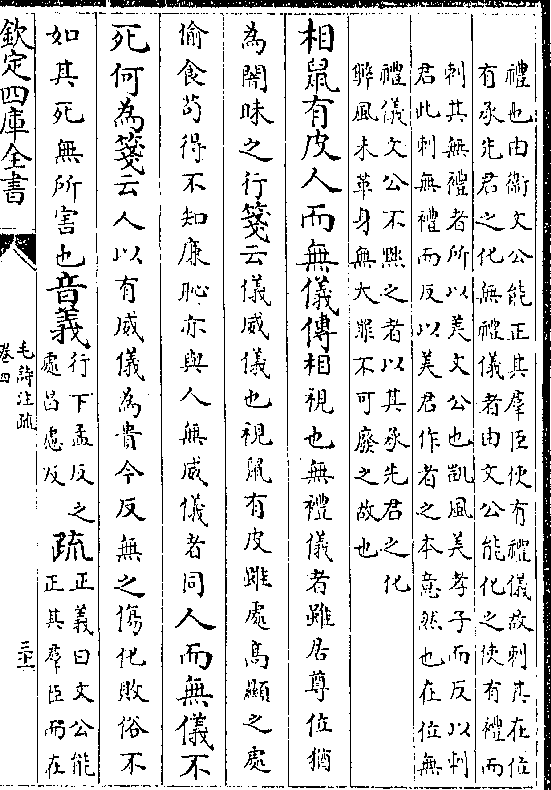 禮也由衛文公能正其羣臣使有禮儀故刺其在位
有承先君之化無禮儀者由文公能化之使有禮而
刺其無禮者所以美文公也凱風美孝子而反以刺
君此刺無禮而反以美君作者之本意然也在位無
禮儀文公不黜之者以其承先君之化
弊風未革身無大罪不可廢之故也
相鼠有皮人而無儀傳相視也無禮儀者雖居尊位猶
為闇昧之行箋云儀威儀也視鼠有皮雖處高顯之處
偷食苟得不知廉恥亦與人無威儀者同人而無儀不
死何為箋云人以有威儀為貴今反無之傷化敗俗不
如其死無所害也音義行下孟反之
處昌慮反
疏正義曰文公能
正其羣臣而在
欽定四庫全書
毛詩注疏
卷四
三十一